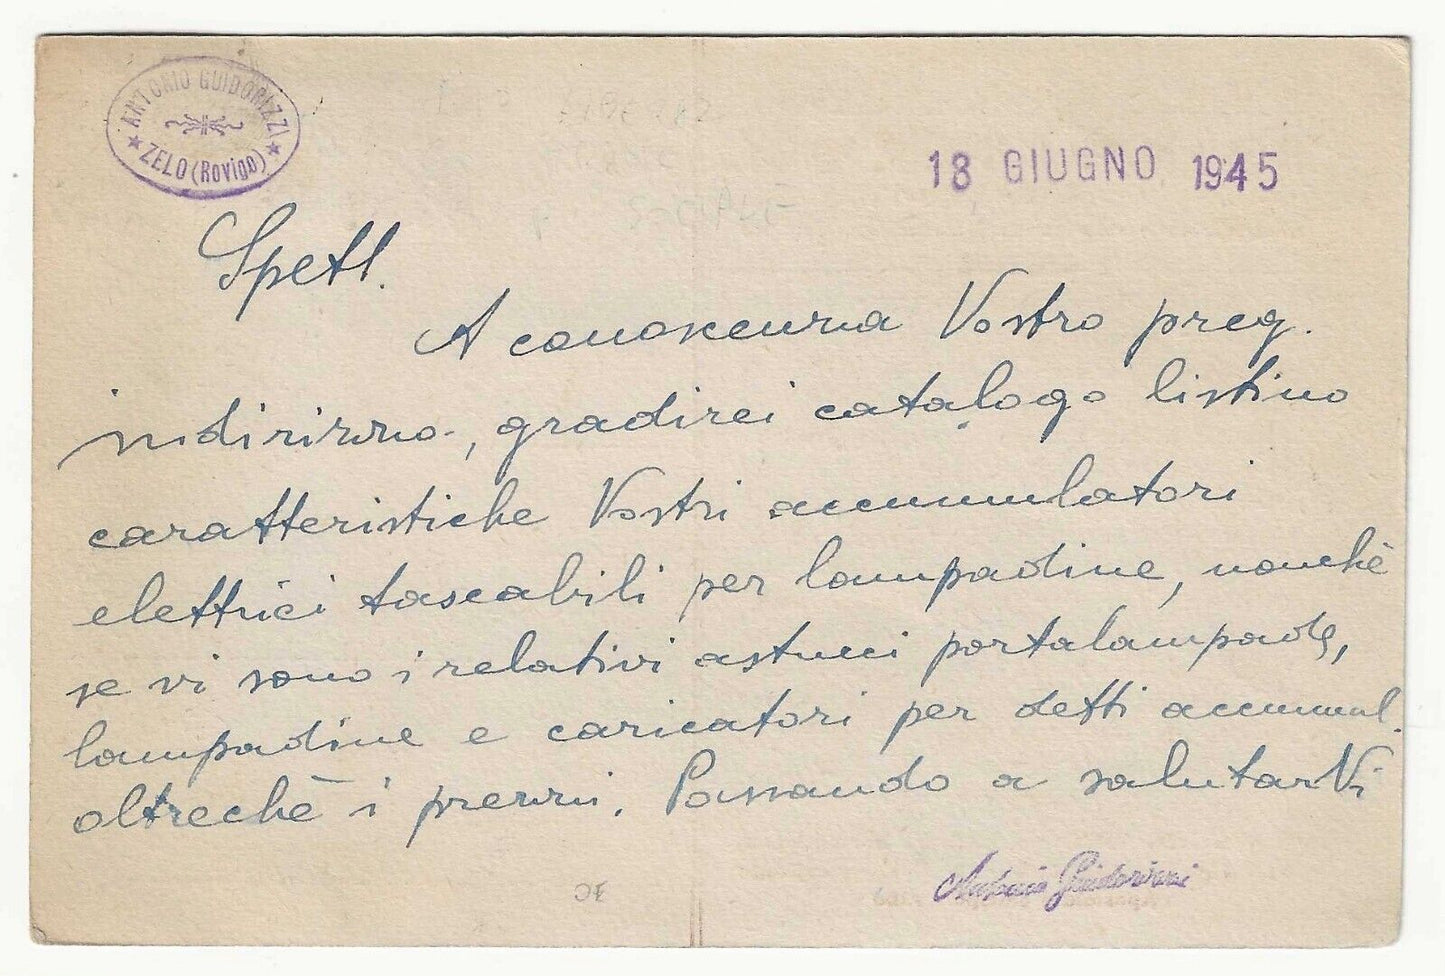 ANTONIO GUIDORIZZI
ZELO (Rovigo)
18 GIUGNO 1945
Spett.
A conoscenza Vostro preg.
indirizzo, gradirei catalogo listino
caratteristiche Vostri accumulatori
elettrici tascabili per lampadine, nonchè
se vi sono i relativi astucci portalampade,
lampadine e caricatori per detti accumul.
oltrechè i prezzi. Passando a salutarVi
Antonio Guidorizzi